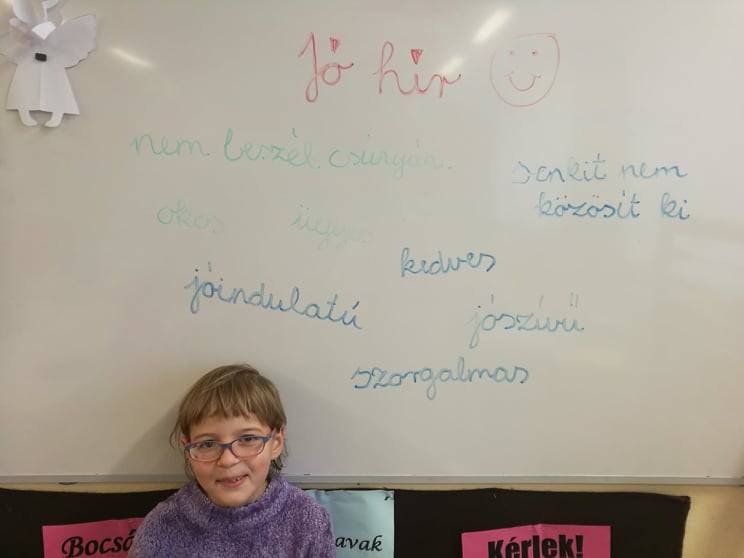 Jó hír
nem beszél csúnyán.
senkit nem
közösít ki
okos ügyes
kedves
jóindulatú
jószívű
szorgalmas
Bocsá
avak
Kérlek!